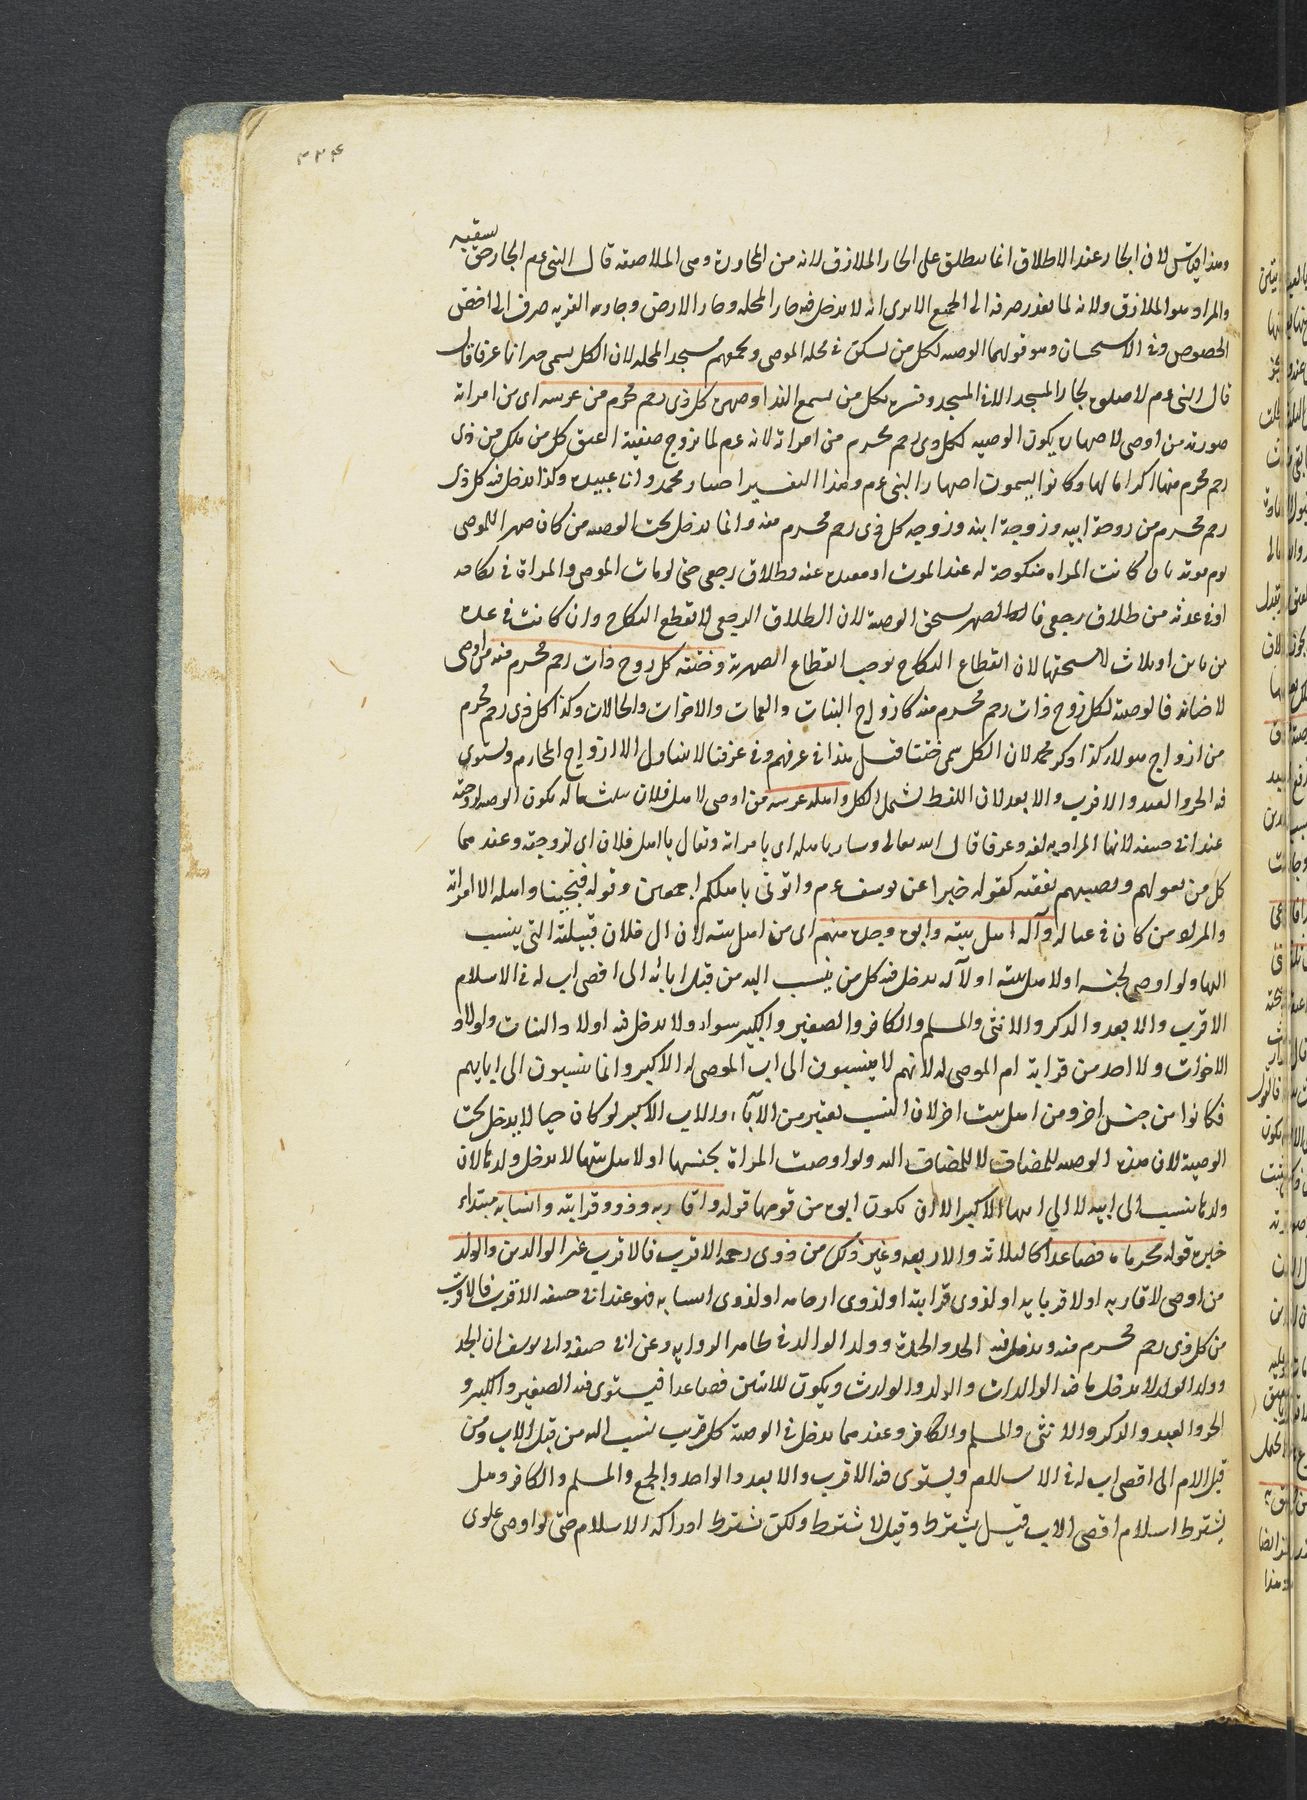 ۴۲۴
وهذا قياس لان الجار عند الاطلاق انما يطلق على الجار الملازق لانه من المجاورة وهى الملاصقة قال النبى عم الجار احق بسقبه
والمراد هو الملازق ولانه لما تعذر صرفه الى الجميع الا يرى انه لا يدخل فيه جار المحلة وجار الارض وجار القرية صرف الى اخص
الخصوص وفى الاستحسان وهو قولهما الوصية لكل من يسكن فى محلة الموصى ويجمعهم مسجد المحلة لان الكل يسمى جيرانا عرفا
قال النبى عم لا صلوة لجار المسجد الا فى المسجد وفسره بكل من يسمع النداء وصهره كل ذى رحم محرم من عرسه اى من امراته
صورته من اوصى لاصهاره يكون الوصية لكل ذى رحم محرم من امراته لانه عم لما تزوج صفية اعتق كل من ملك من ذى
رحم محرم منها اكراما لها وكانوا يسمون اصهار النبى عم وهذا التفسير اختيار محمد وابى عبيدة وكذا يدخل فيه كل ذى
رحم محرم من زوجة ابيه وزوجة ابنه وزوجة كل ذى رحم محرم منه وانما يدخل تحت الوصية من كان صهرا للموصى
يوم موته بان كانت المراة منكوحة له عند الموت او معتدة عنه بطلاق رجعى حتى لو مات الموصى والمراة فى نكاحه
او فى عدته من طلاق رجعى فالصهر يستحق الوصية لان الطلاق الرجعى لا يقطع النكاح وان كانت فى عدة
من باين او ثلاث لا يستحقها لان انقطاع النكاح يوجب انقطاع الصهرية وختنه كل زوج ذات رحم محرم منه من اوصى
لاختانه فالوصية لكل زوج ذات رحم محرم منه كازواج البنات والعمات والاخوات والخالات وكذا كل ذى رحم محرم
من ازواج هؤلاء كذا ذكر محمد لان الكل يسمى ختنا قيل هذا فى عرفهم وفى عرفنا لا يتناول الا ازواج المحارم ويستوى
فيه الحر والعبد والاقرب والابعد لان اللفظ يشمل الكل واهله عرسه من اوصى لاهل فلان بثلث ماله يكون الوصية لزوجته
عند ابى حنيفة لانها المراد به لغة وعرفا قال الله تعالى وسار باهله اى بامراته ويقال يا اهل فلان اى لزوجته وعندهما
كل من يعولهم ويصيبهم نفقته كقوله خبرا عن يوسف عم واتونى باهلكم اجمعين وقوله فنجيناه واهله الا امراته
والمراد من كان فى عياله وآله اهل بيته وابوه وجده منهم اى من اهل بيته لان ال فلان قبيلته التى ينسب
اليها ولو اوصى لجنسه او لاهل بيته او لآله يدخل فيه كل من ينسب اليه من قبل ابائه الى اقصى اب له فى الاسلام
الاقرب والابعد والذكر والانثى والمسلم والكافر والصغير والكبير سواء ولا يدخل فيه اولاد البنات واولاد
الاخوات ولا احد من قرابة ام الموصى له لانهم لا ينسبون الى اب الموصى له الاكبر وانما ينسبون الى ابايهم
فكانوا من جنس اخر ومن اهل بيت اخر لان النسب يعتبر من الآباء والاب الاكبر لو كان حيا لا يدخل تحت
الوصية لان هذه الوصية للمضاف لا للمضاف اليه ولو اوصت المراة بجنسها او لاهل بيتها لا يدخل ولدها لان
ولدها ينسب الى ابيه لا الي امها الاكبر الا ان يكون ابوه من قومها قوله واقاربه وذوو قرابته وانسابه مبتداء
خبره قوله محرماه فصاعدا كالثلاثة والاربعة وغير ذلك من ذوى رحمه الاقرب فالاقرب غير الوالدين والولد
من اوصى لاقاربه او لاقربايه او لذوى قرابته او لذوى ارحامه او لذوى انسابه فهو عند ابى حنيفة الاقرب فالاقرب
من كل ذى رحم محرم منه ويدخل فيه الجد والجدة وولد الوالد فى ظاهر الرواية وعن ابى حنيفة وابى يوسف ان الجد
وولد الولد لا يدخل ما فيه الوالدان والولد والوارث ويكون للاثنين فصاعدا فيستوى فيه الصغير والكبير و
الحر والعبد والذكر والانثى والمسلم والكافر وعندهما يدخل فى الوصية كل قريب ينسب اليه من قبل الاب ومن
قبل الام الى اقصى اب له فى الاسلام ويستوى فيه الاقرب والابعد والواحد والجمع والمسلم والكافر وهل
يشترط اسلام اقصى الاب قيل يشترط وقيل لا يشترط ولكن يشترط ادراكه الاسلام حتى لو اوصى علوى